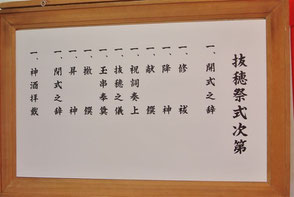 抜穂祭式次第
一、開式之辞
一、修祓
一、降神
一、献饌
一、祝詞奏上
一、抜穂之儀
一、玉串奉奠
一、撤饌
一、昇神
一、閉式之辞
一、神酒拝戴